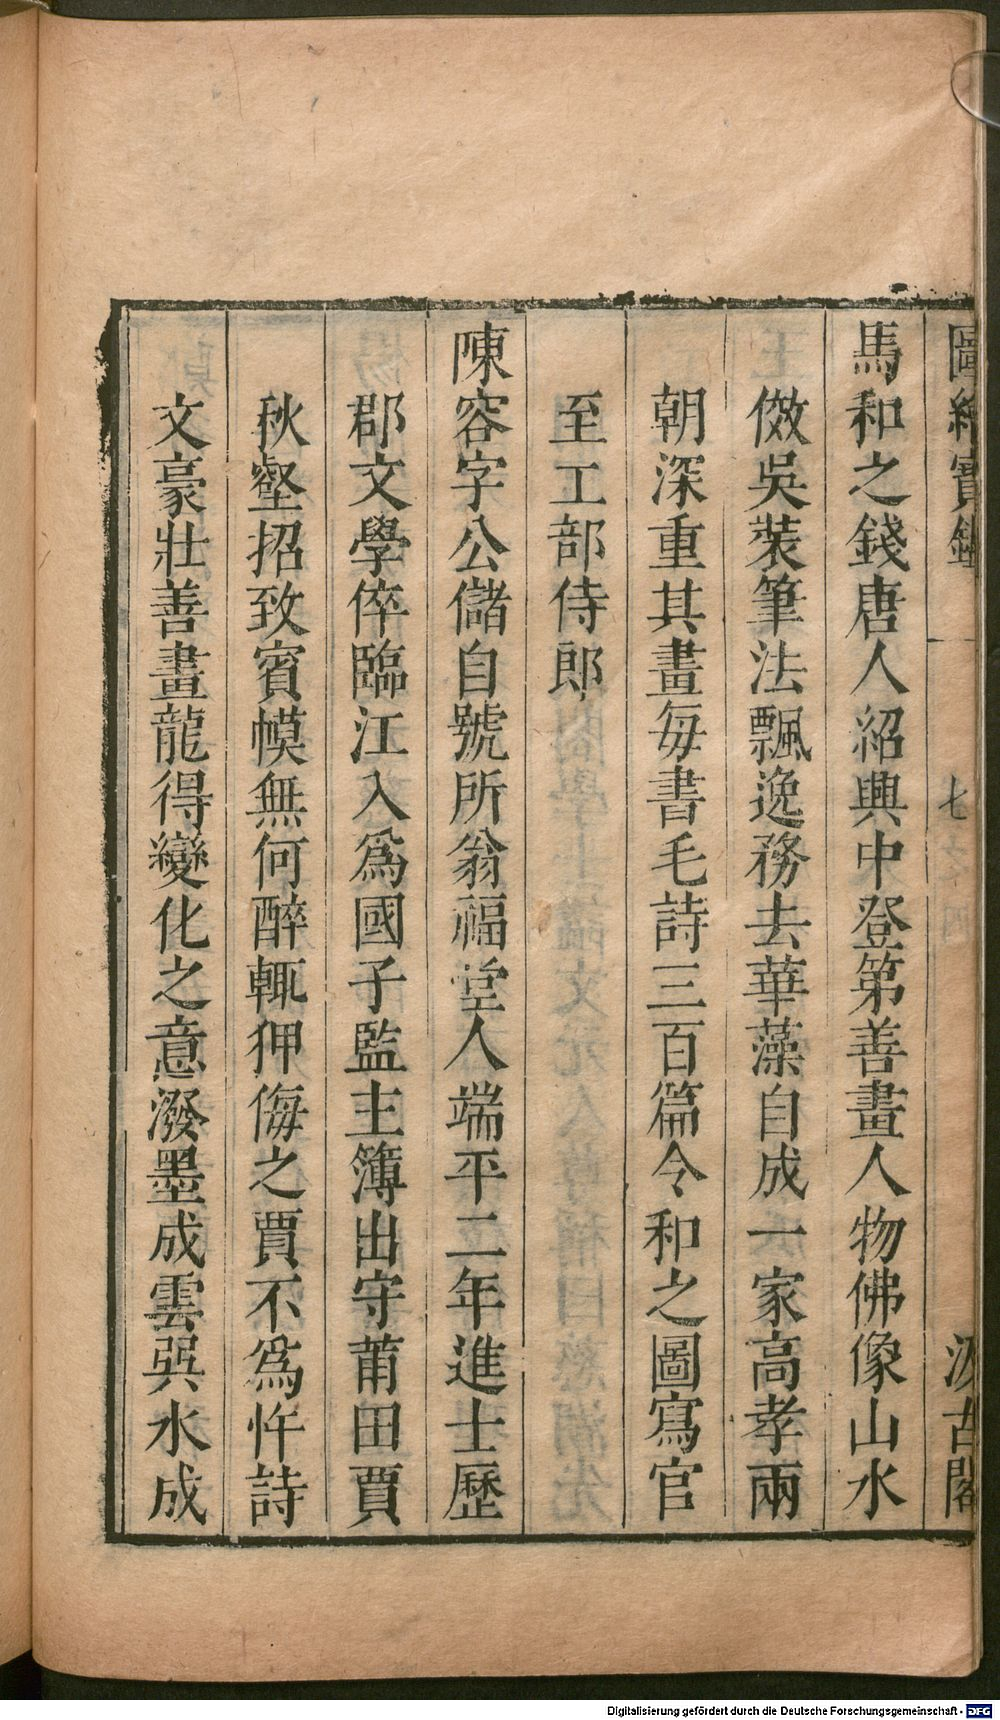 圖繪寶鑑
七
汲古閣
馬和之錢唐人紹興中登第善畫人物佛像山水
倣吳裝筆法飄逸務去華藻自成一家高孝兩
朝深重其畫每書毛詩三百篇令和之圖寫官
至工部侍郎
陳容字公儲自號所翁福堂人端平二年進士歷
郡文學倅臨江入爲國子監主簿出守莆田賈
秋壑招致賓幙無何醉輒狎侮之賈不爲忤詩
文豪壯善畫龍得變化之意潑墨成雲噀水成
Digitalisierung gefördert durch die Deutsche Forschungsgemeinschaft - DFG